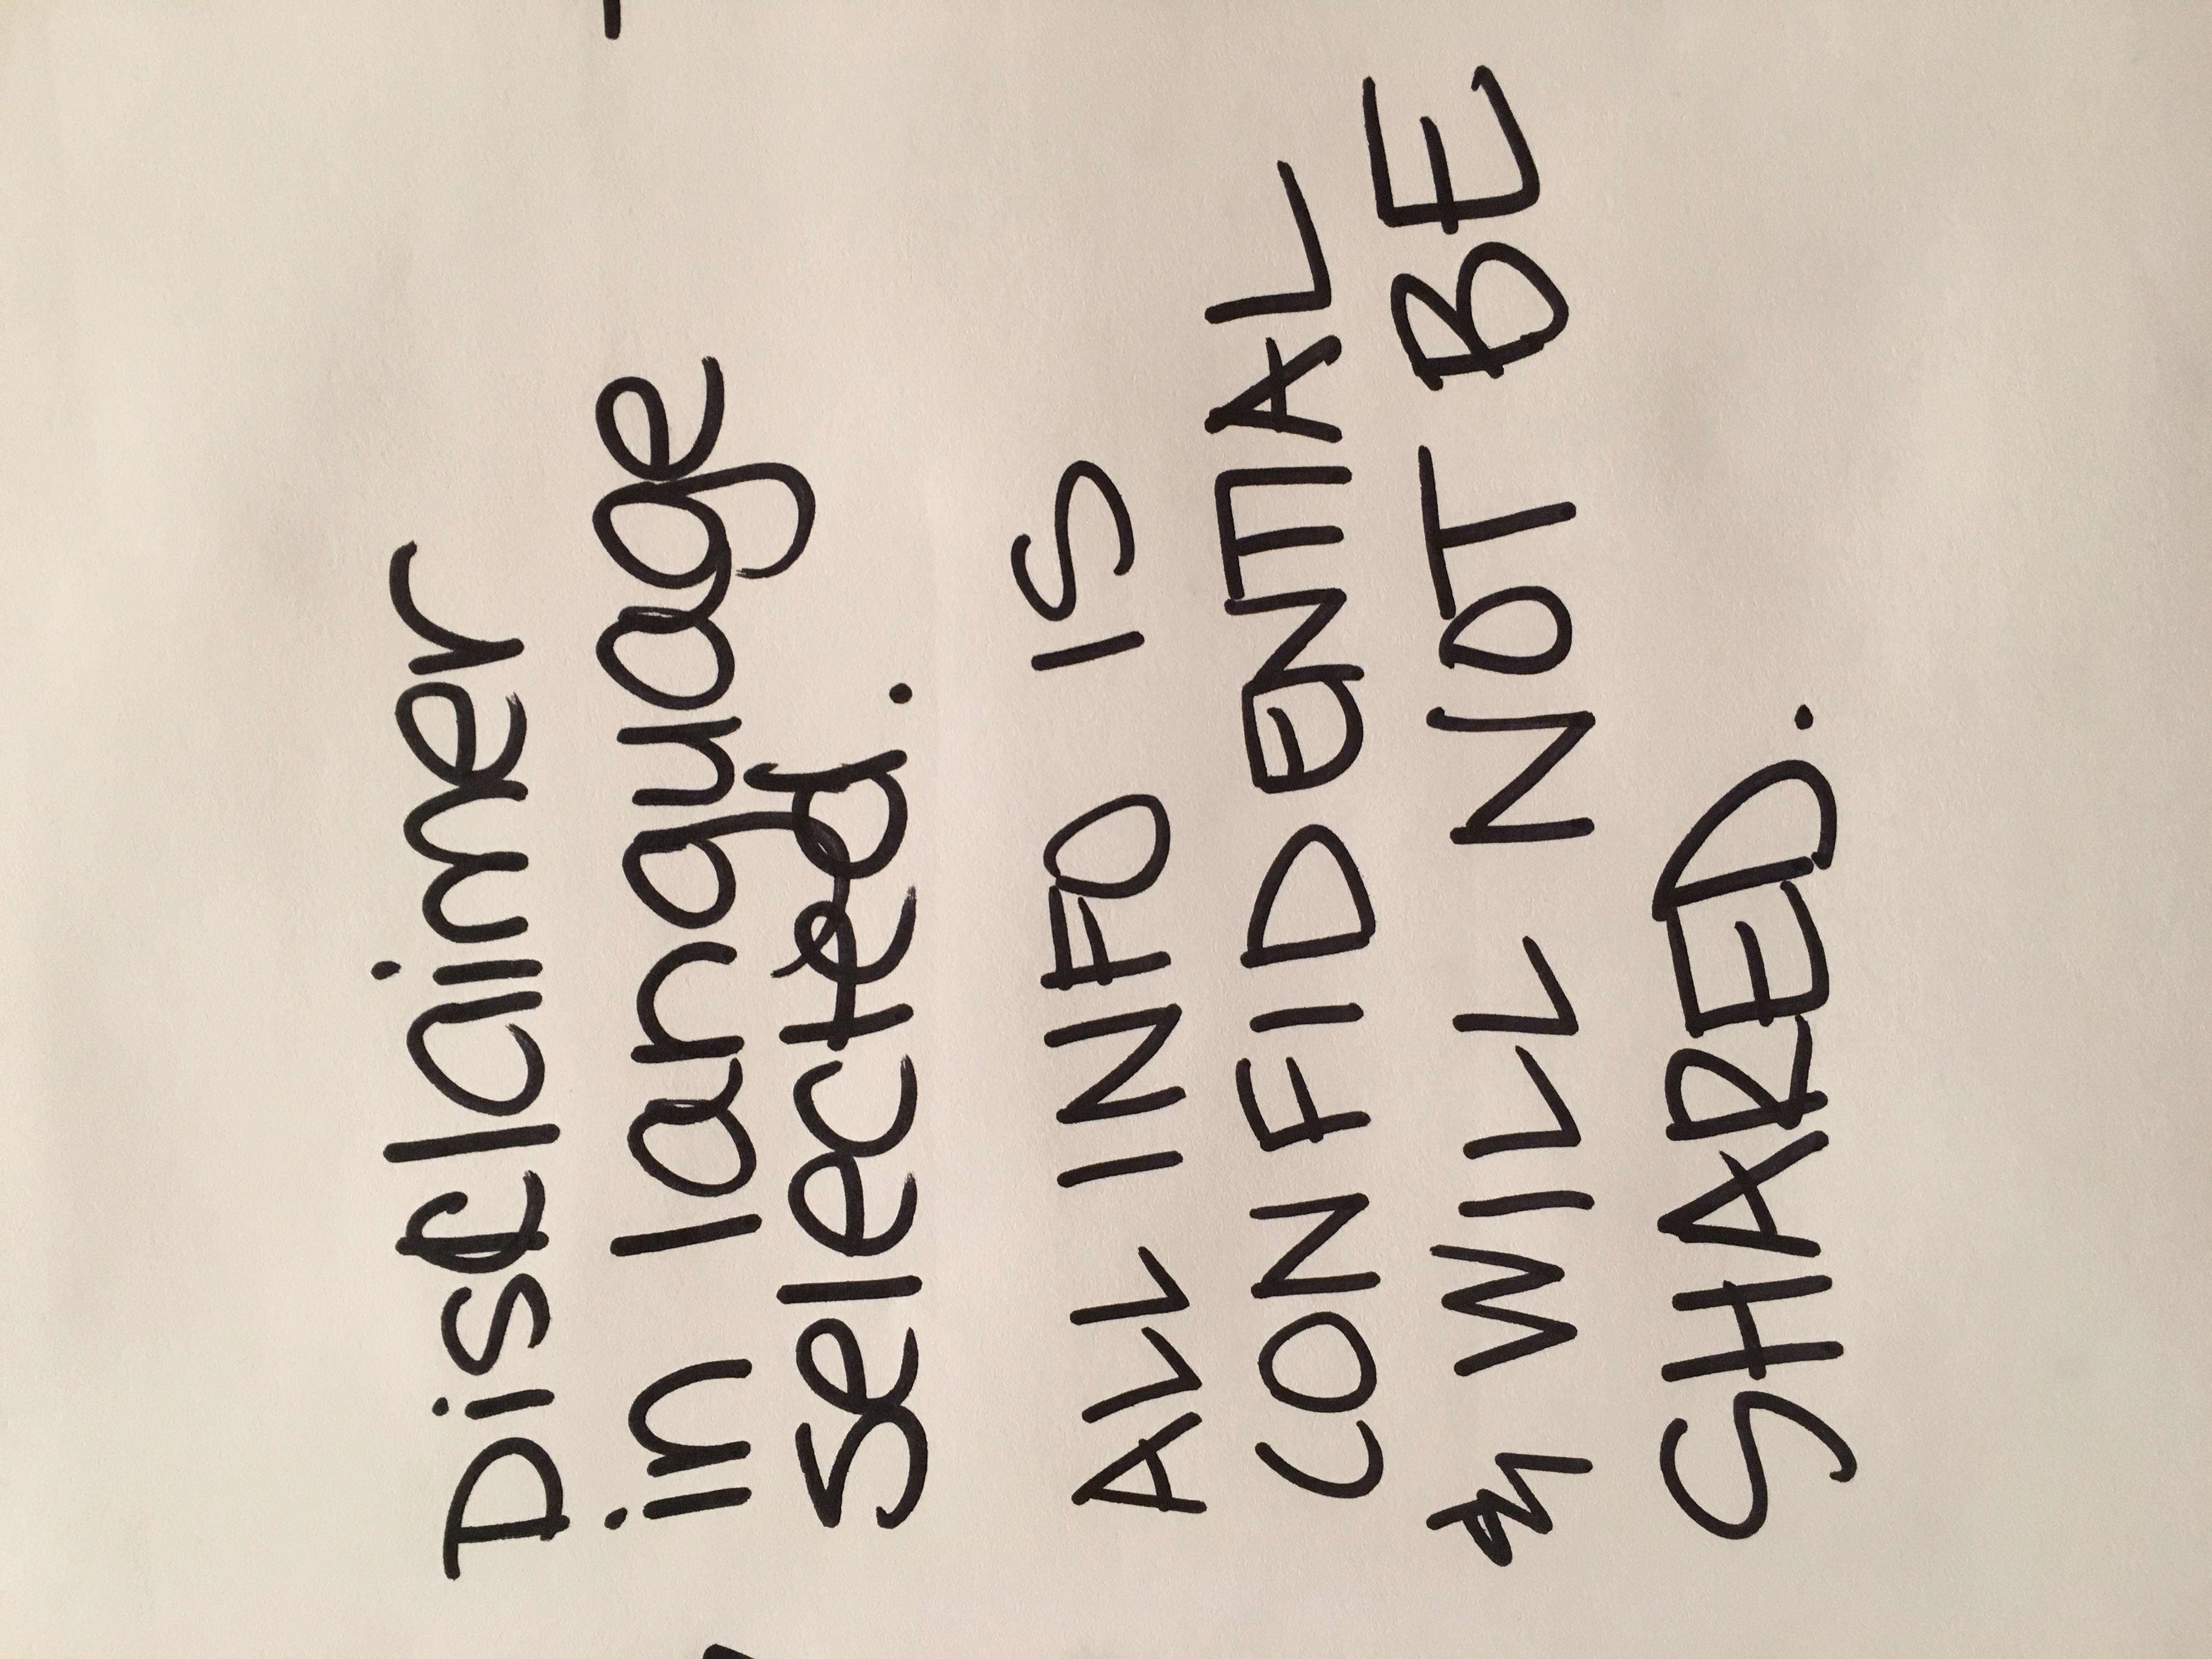 Disclaimer
in language
selected.
ALL INFO IS
CONFIDENTIAL
& WILL NOT BE
SHARED.